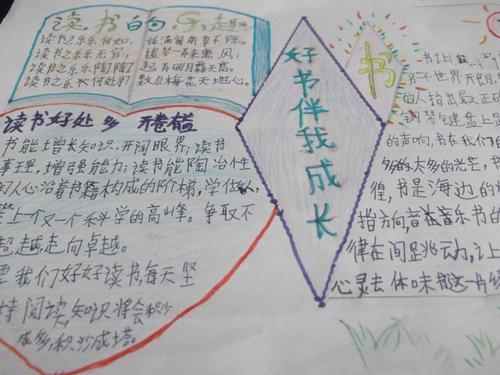 读书的乐趣
读书之乐乐何如，绿满窗前草不除。
读书之乐乐无穷，瑶琴一弄来薰风；
读书之乐乐陶陶，起弄明月霜天高。
读书之乐何处寻？数点梅花天地心。
读书好处多 开卷有益
书能增长知识，开阔眼界；读书
事理，增强能力；读书能陶冶性
人心沿着书籍构成的阶梯，学做
上个又一个科学的高峰。争取不
超越走向卓越。
要我们好好读书每天坚
持阅读，知识将会积少
成多，积沙成塔。
好书伴我成长
书
书上
界不世界无月，
的人指出最正确
钢琴键盘上
的声响，书在我们的
多的太多的光芒，
徨，书是海边的
指方向，音在音乐书的
律在间跳动，让上
心灵去体味那这一片